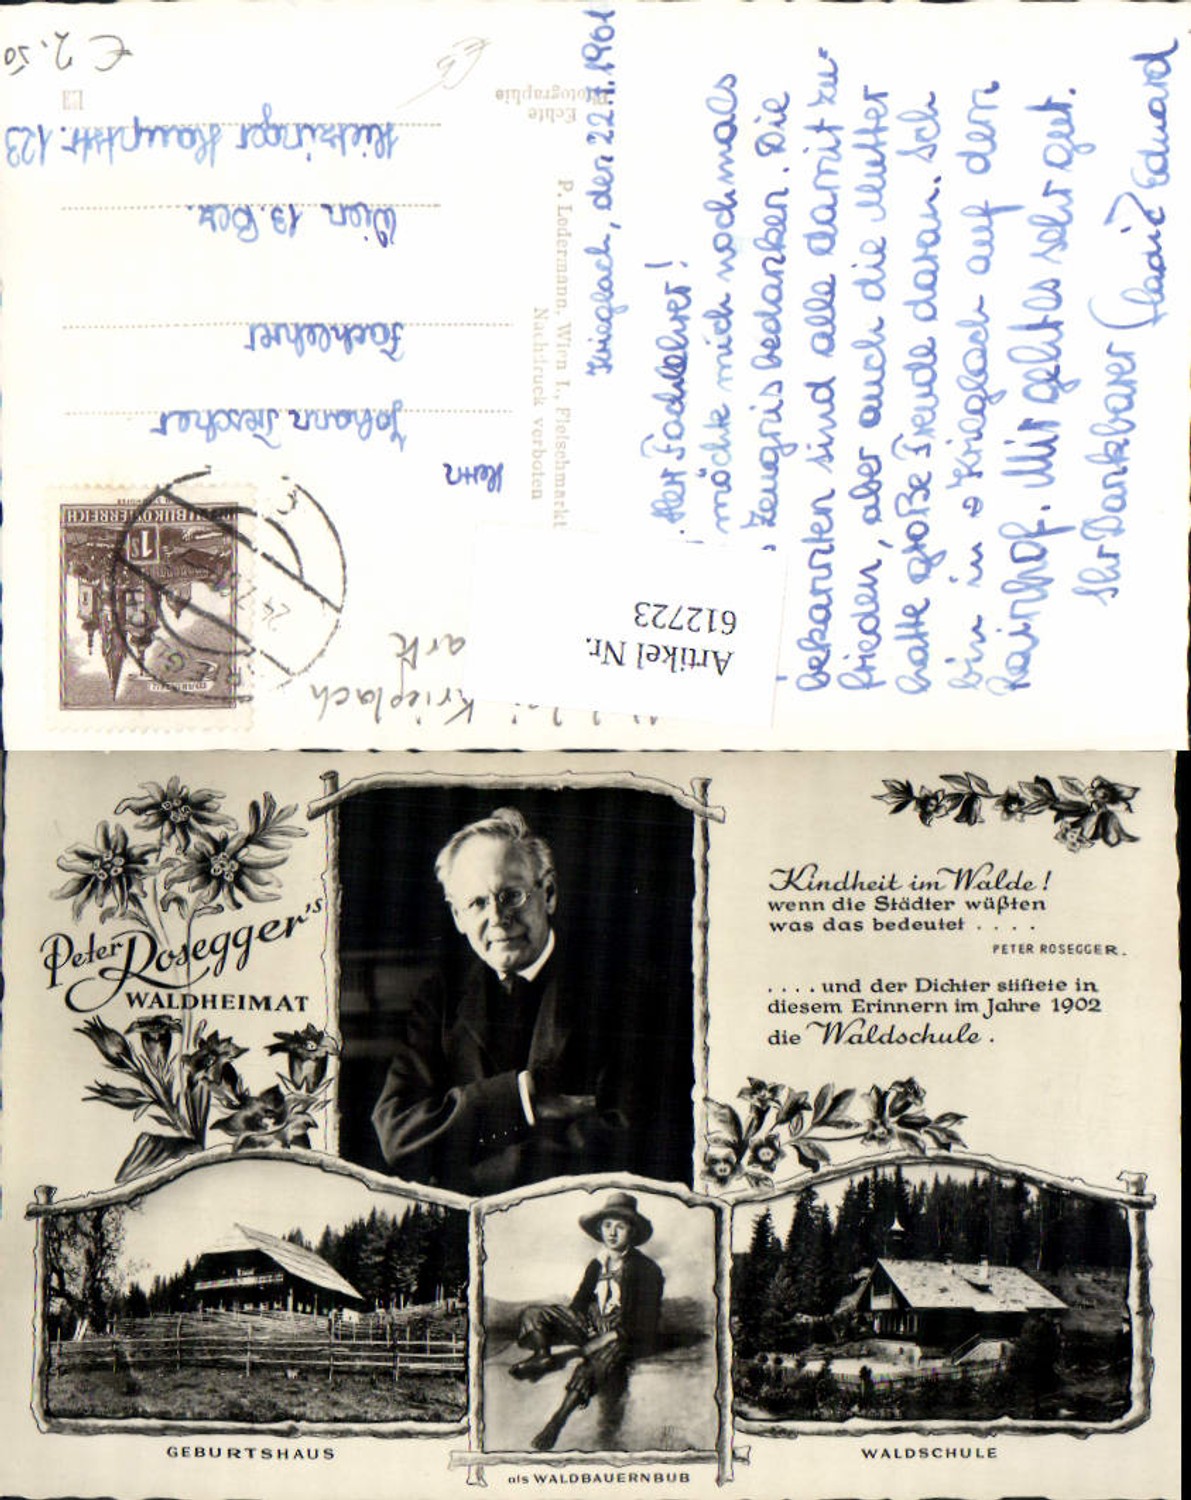 Krieglach, den 22.7.1961
Herr Fachlehrer!
möchte mich nochmals
Zeugnis bedanken. Die
bekannten sind alle damit zu-
frieden, aber auch die Mutter
hatte große Freude daran. Ich
bin in Krieglach auf den
Rainhof. Mir geht es sehr gut.
Ihr Dankbarer Eduard
Echte
Photographie
P. Ledermann, Wien I., Fleischmarkt
Nachdruck verboten
Herrn
Johann Trescher
Fachlehrer
Wien 13. Bez.
Hietzinger Hauptstr. 123
€ 2.50
REPUBLIK ÖSTERREICH
1S
MARIAZELL
Artikel Nr.
612723
Krieglach
Peter Rosegger's
WALDHEIMAT
Kindheit im Walde!
wenn die Städter wüßten
was das bedeutet . . . .
PETER ROSEGGER.
. . . . und der Dichter stiftete in
diesem Erinnern im Jahre 1902
die Waldschule.
GEBURTSHAUS
als WALDBAUERNBUB
WALDSCHULE